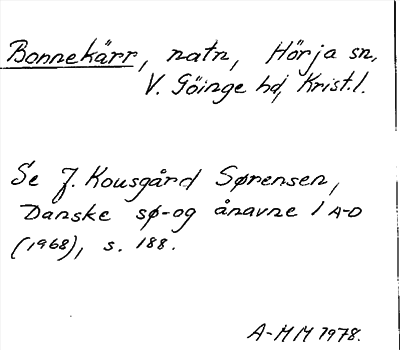 Bonnekärr, natn, Hörja sn,
V. Göinge hd, Krist.l.
Se J. Kousgård Sørensen,
Danske sø-og ånavne 1 A-D
(1968), s. 188.
A-M M 1978.